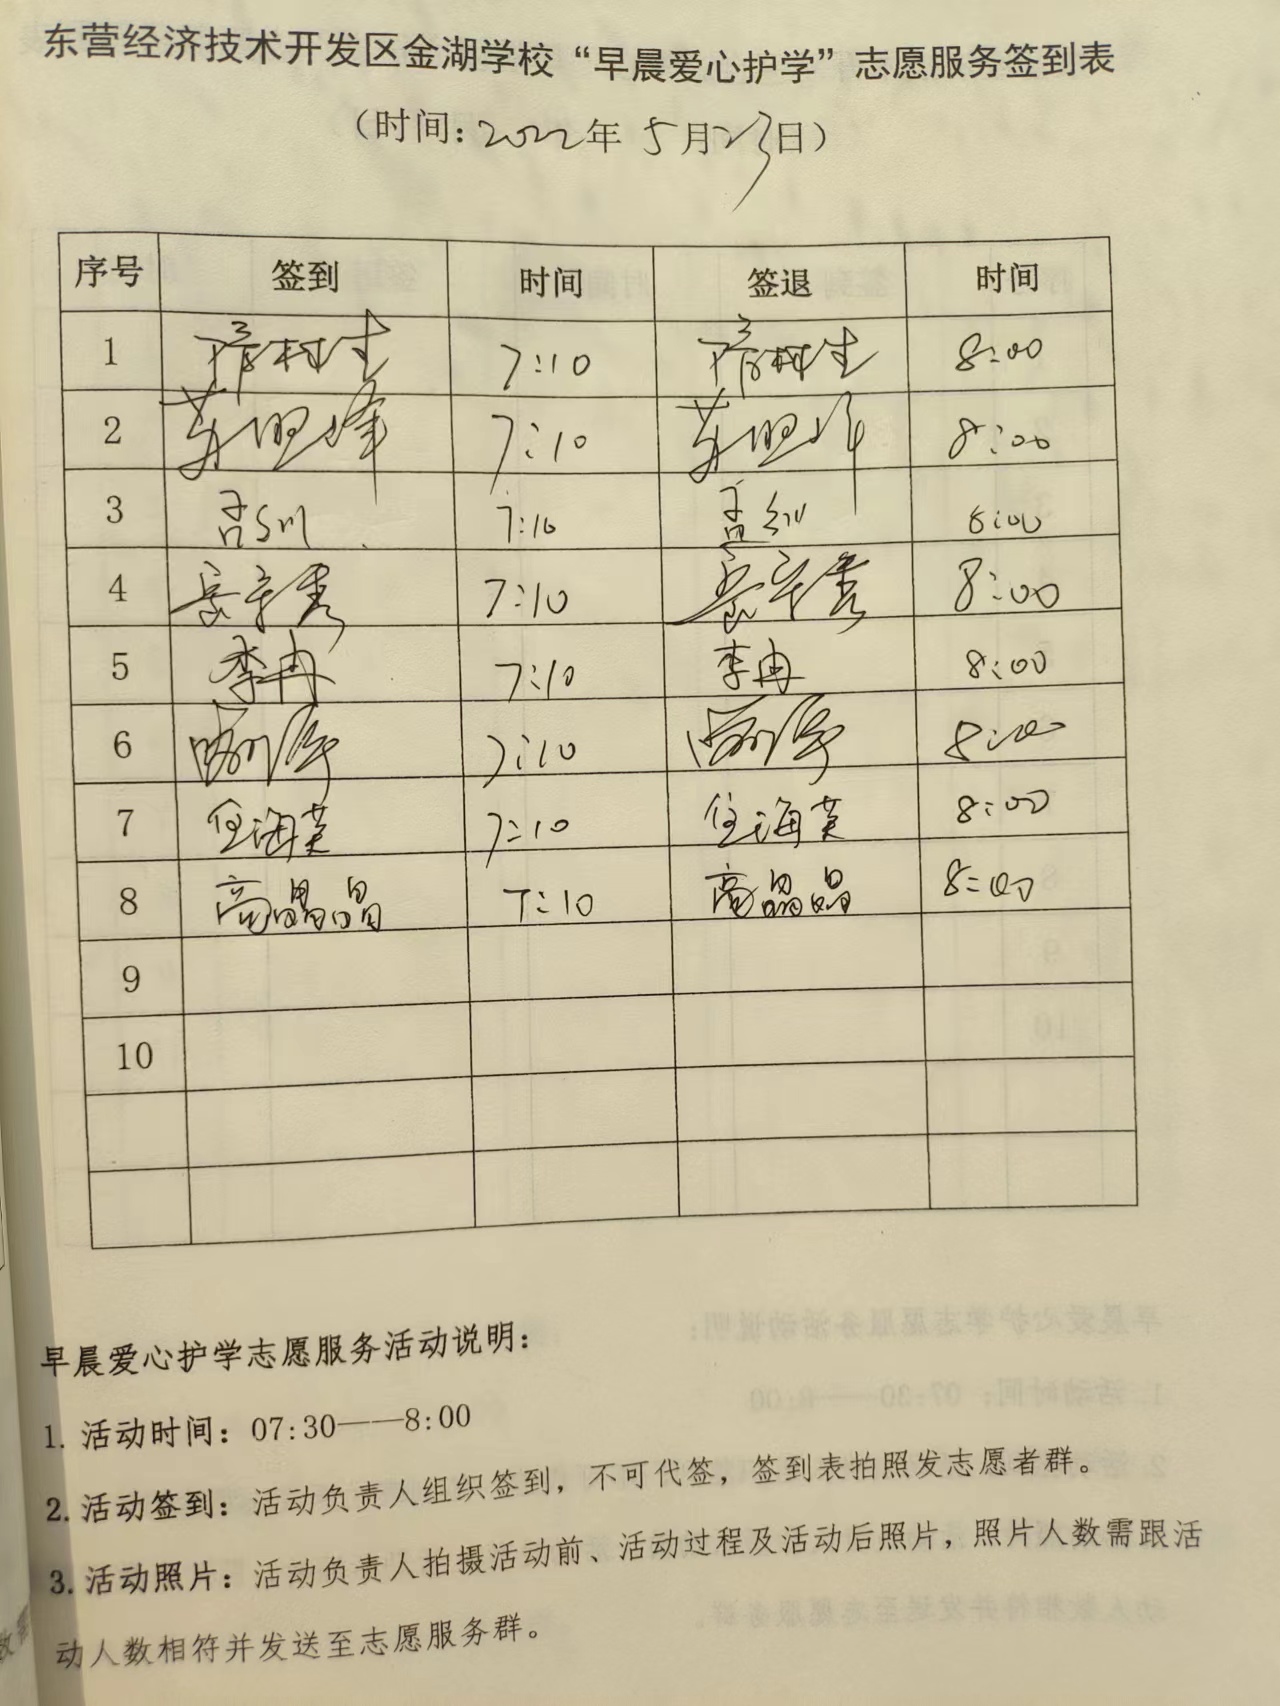 东营经济技术开发区金湖学校“早晨爱心护学”志愿服务签到表
（时间：2022年 5月23日）
序号 签到 时间 签退 时间
1 7:10 8:00
2 7:10 8:00
3 7:10 8:00
4 7:10 8:00
5 李冉 7:10 李冉 8:00
6 7:10 8:00
7 任海英 7:10 任海英 8:00
8 高晶晶 7:10 高晶晶 8:00
9
10
早晨爱心护学志愿服务活动说明：
1. 活动时间：07:30——8:00
2. 活动签到：活动负责人组织签到，不可代签，签到表拍照发志愿者群。
3. 活动照片：活动负责人拍摄活动前、活动过程及活动后照片，照片人数需跟活
动人数相符并发送至志愿服务群。